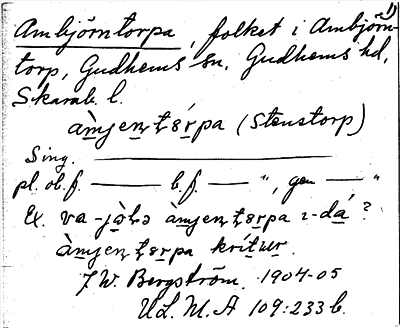 1)
Ambjörntorpa, folket i Ambjörn-
torp, Gudhems sn. Gudhems hd,
Skarab. l.
àmjen̥ t̠s̠ŕ̠pa (Stenstorp)
Sing. ———
pl. ob. f. ——— b. f. ——— ", gen ——— "
Ex. va - àmjen̥ t̠s̠r̠pa ı-dá ?
àmjen̥ t̠s̠r̠pa
J. W. Bergström. 1904-05
ULMA 109:233 b.